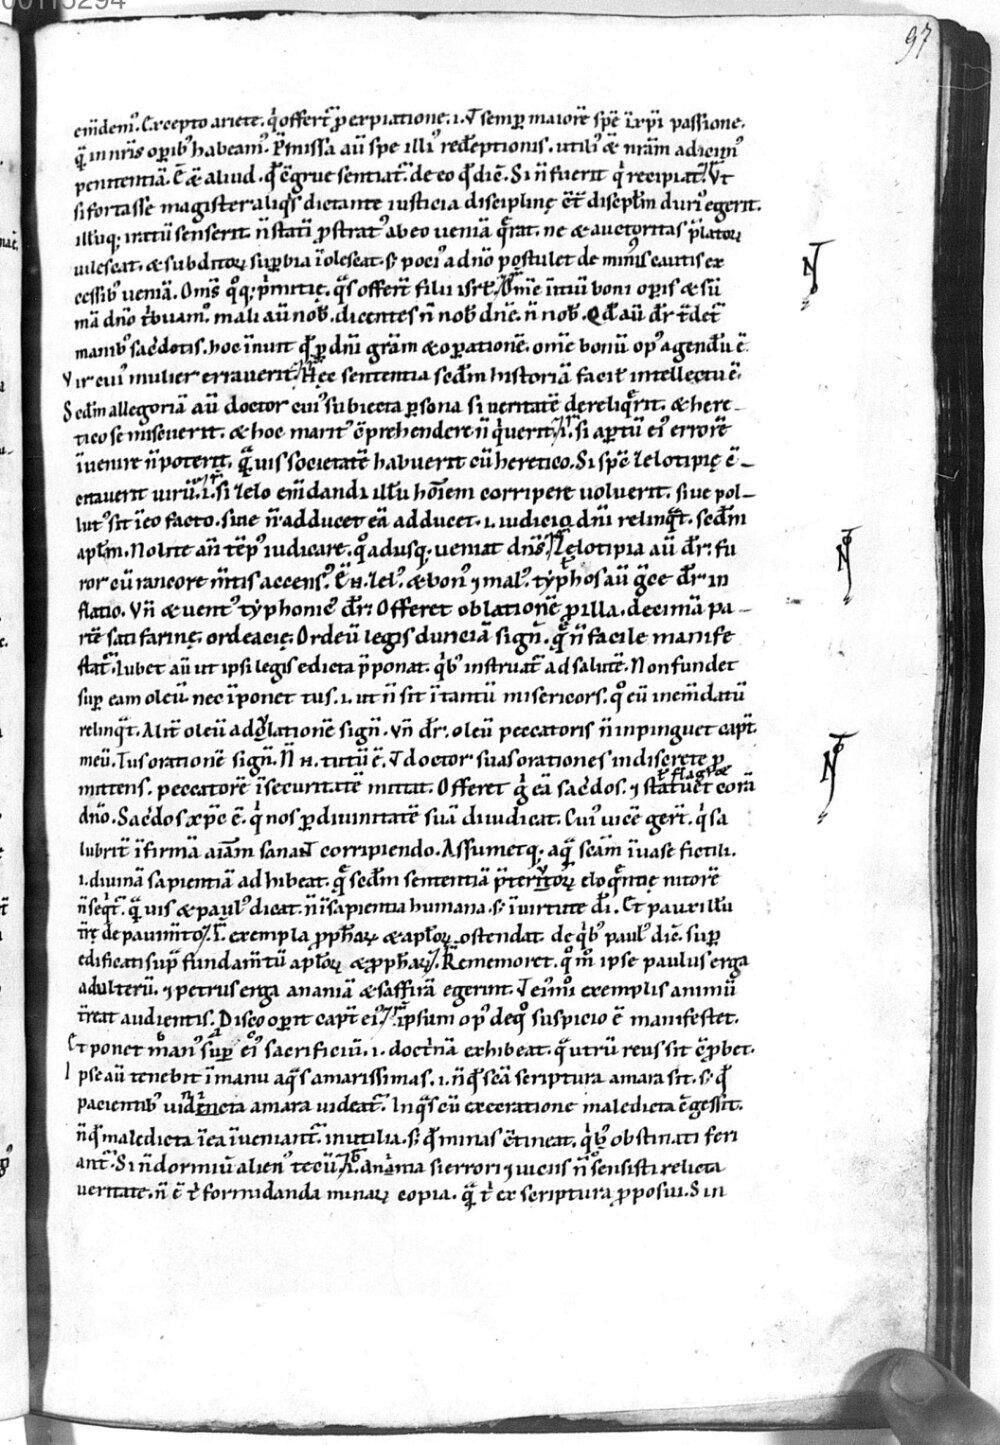 00115294
97
em̄dem᷒. Excepto ariete. q̇ offert̄ p̄ expiatione. i. semp maiorē spē ī xp̄i passione.
q̄ in nr̄is opib᷒ habeam᷒. P̄missa aū spe illi᷒ redēptionis. utili᷒ & nr̄am adicim᷒
penitentiā. Ē & aliud. sentiat̄. de eo qd̄ diē. Si n̄ fuerit q̇ recipiat. Ut
si fortasse magister aliq̇s dictante iusticia disciplinę ēt̄ discipl̄m duri᷒ egerit.
ill̄uq; inītū senserit n̄ statī pstrat᷒ ab eo ueniā q̄rat. ne & auctoritas p̄latoꝝ
uilescat. & subditoꝝ supbia īolescat. s; poci᷒ a dn̄o postulet de min᷒ cautis ex
cessib᷒ ueniā. Om̄s q̊q; p̄mitię. q̄s offert̄ filii isrl̄. Om̄e īitiū boni opis & sū
mā dn̄o t̄buam᷒. mali aū nob̄. dicentes n̄ nob̄ dn̄e. n̄ nob̄. Qd̄ aū dr̄ t̄det̄
manib᷒ sac̄dotis. hoc īnuit qd̄ p dn̄i gr̄am & opationē. om̄e bonū op᷒ agendū ē.
Vir cui᷒ mulier errauerit. Hęc sententia sedm historiā facil̄ intellectu ē.
Sedm allegoriā aū doctor cui᷒ subiecta psona si ueritatē dereliq̄rit. & here-
tico se miscuerit. & hoc marit᷒ c̄prehendere n̄ q̇uerit. i. si aptū ei᷒ errorē
īuenire n̄ poterit. q̄uis societatē habuerit cū heretico. Si spē zelotipię c̄-
citauerit uirū. i. si zelo em̄dandi ill̄u hōiem corripere uoluerit. siue pol-
lut᷒ sit īeo facto. siue n̄ adducet eā adducet. i. iudicio dn̄i relinq̄t. sedm
apl̄m. Nolite an̄ tēp᷒ iudicare. q̊adusq; ueniat dn̄s. Zelotipia aū dr̄. fu
ror cū rancore m̄tis accens᷒. zel᷒. & bon᷒ ⁊ mal᷒. typhos aū g̊ce dr̄ in
flatio. Vn̄ & uent᷒ typhonic᷒ dr̄. Offeret oblationē p illa. decimā pa-
rtē sati farinę. ordeacię. Ordeū legis duriciā sign̄. q̄ n̄ facile manife
stat̄. Iubet aū ut ipsi legis edicta p̄ponat. q̇b᷒ instruat̄ ad salutē. Non fundet
sup eam oleū. nec īponet tus. i. ut n̄ sit ī tantū misericors. q̊ eū inem̄datū
relinq̄t. Alit̄ oleū adolationē sign̄. vn̄ dr̄. oleū peccatoris n̄ inpinguet cap̄t.
meū. Tus orationē sign̄. N̄ tutū ē. doctor suas orationes indiscrete p
mittens. peccatorē īsecuritatē mittat. Offeret ḡ eā sac̄dos. ⁊ statuet corā
dn̄o. Sacdos xp̄c ē. q̇ nos p diuinitatē suā diiudicat. Cui᷒ uicē gerit̄. q̇ sa
lubrit̄ īfirmā aīam corripiendo. Assumetq; aq̄ scām īuase fictili.
i. diuinā sapientiā adhibeat. q̄ sedm sententiā eloq̄ntię nitorē
n̄ seq̇t̄. q̄uis & paul᷒ dicat. n̄ ī sapientia humana. s; īuirtute dī. Et pauxillū
de pauim̄to. exempla pphaꝝ & apl̄oꝝ ostendat. de q̇b᷒ paul᷒ diē. sup
edificati sup̄ fundam̄tū apl̄oꝝ & pphaꝝ. Rememoret. q̊m ipse paulus erga
adulterū. ⁊ petrus erga ananiā & saffirā egerint. exemplis animū
t̄reat audientis. Disco opit cap̄t ei᷒. ipsum op᷒ de q̊ suspicio ē manifestet.
Et ponet man᷒ sup ei᷒ sacrificiū. i. doct̄nā exhibeat. q̄ utrū reus sit c̄pbet.
Ipse aū tenebit īmanu aq̄s amarissimas. i. n̄ qd̄ scā scriptura amara sit. s; qd̄
pacientib᷒ amara uideat̄. In q̄s cū execratione maledicta c̄gessit.
n̄ qd̄ maledicta īea īueniant̄ inutilia. s; qd̄ minas c̄tineat. q̇b᷒ obstinati feri
ant̄. Si n̄ dormiū alien᷒ tecū. si errori ⁊ n̄ sensisti relicta
ueritate. n̄ ē t̄ formidanda minaꝝ copia. q̄ t̄ ex scriptura pposui. Sin